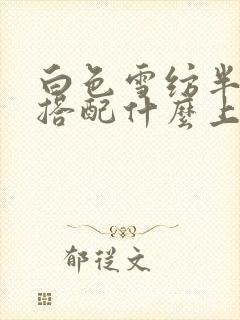 白色雪纺半
搭配什麼上
郁従文